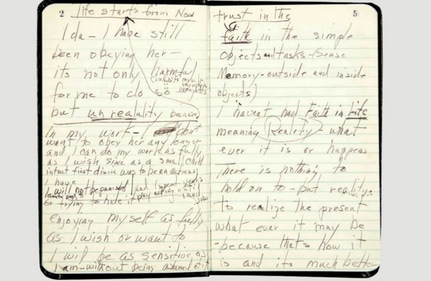 2 life starts from Now
Ida - I have still
been obeying her -
it's not only harmful
for me to do so
but unreality because
In my work - I don't
want to obey her any longer
and I can do my work as fully
as I wish since as a small child
intact first desire was to be an actress
I will not be punished
or trying to hide it
enjoying myself as fully
as I wish or want to
I will be as sensitive as
I am - without being ashamed of it
5
trust in the
faith in the simple
objects and tasks - Sense
Memory - outside and inside
objects)
I havent had Faith in Life
meaning Reality - what
ever it is or happens
There is nothing to
hold on to - but reality
to realize the present
what ever it may be
- because that's how it
is and its much better